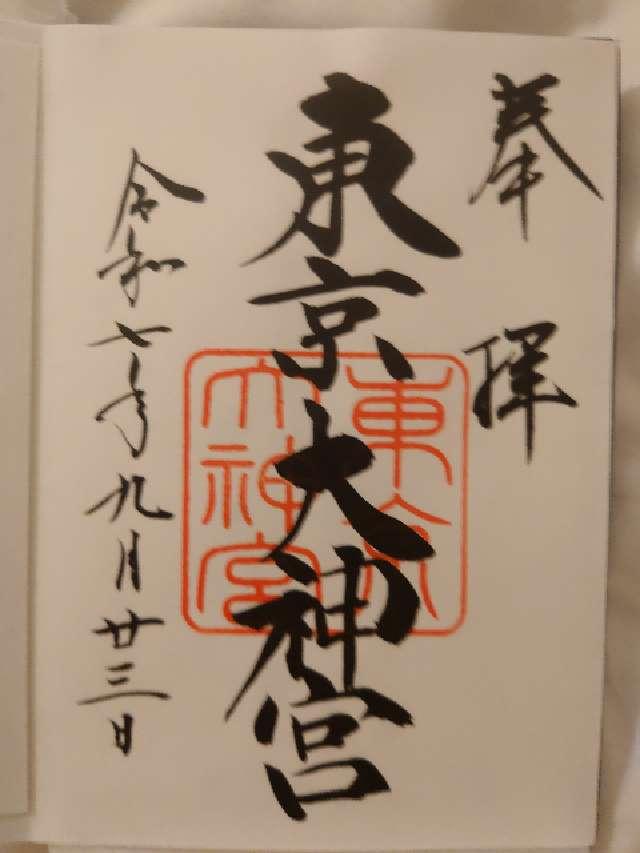 奉拝
東京大神宮
東京大神宮
令和七年九月廿三日